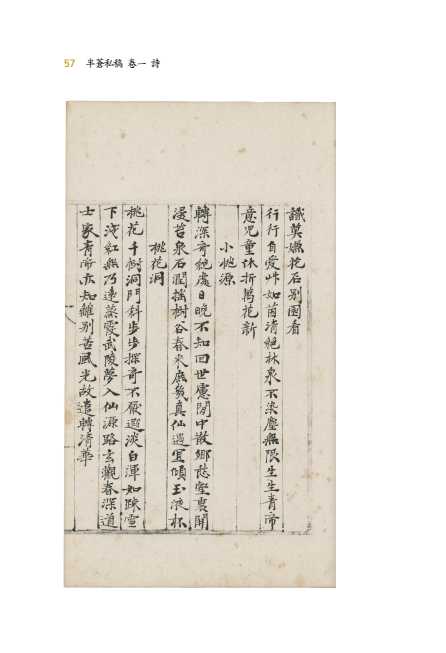 57 半蒼私稿 卷一 詩
識莫嫌花石別國看
行行自愛艸如茵清絕林泉不染塵無限生生青帝
意兒童休折萬花新
小桃源
轉深奇絕處日晚不知回世慮閒中散鄉愁壑裏開
漫苔泉石潤搖樹谷春來庶幾真仙遇宜傾玉液杯
桃花洞
桃花千樹洞門斜步步探奇不厭遐淡白渾如踈雪
下淺紅無乃遠蒸霞武陵夢入仙源路玄觀春深道
士家青帝亦知離別苦風光故遣轉清華